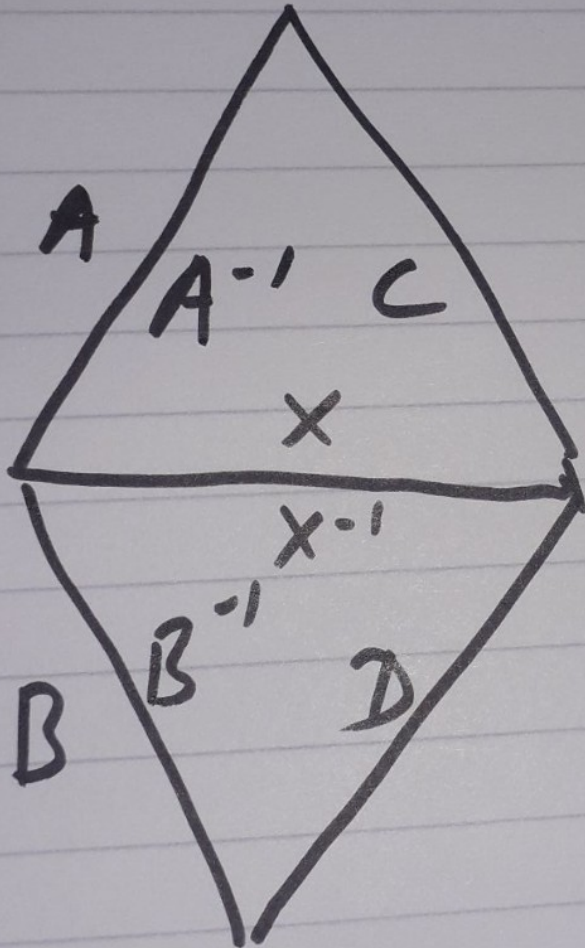 A
A⁻¹ C
X
X⁻¹
B⁻¹
B D